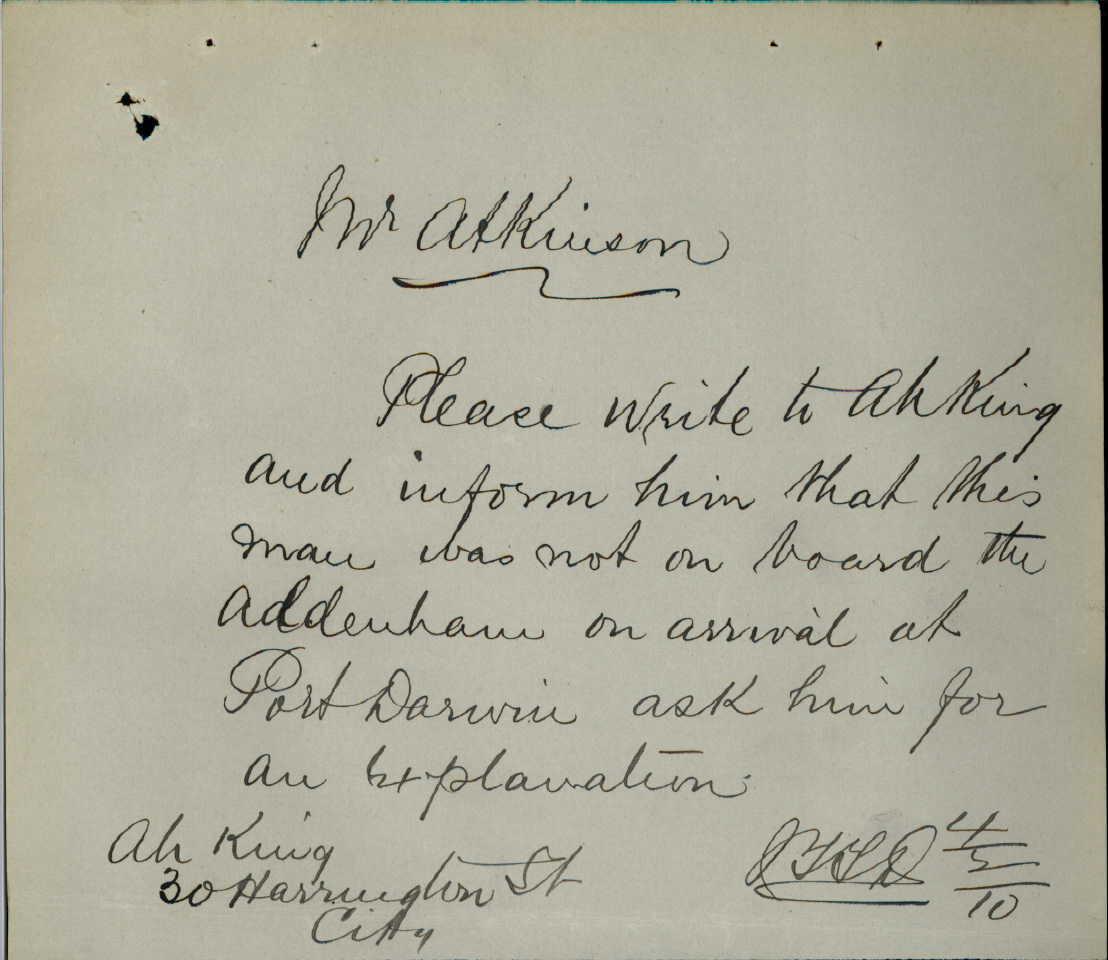 Mr Atkinson
Please write to Ah King
and inform him that this
man was not on board the
Addenham on arrival at
Port Darwin ask him for
an Explanation.
Ah King
30 Harrington St
City
4/5/10